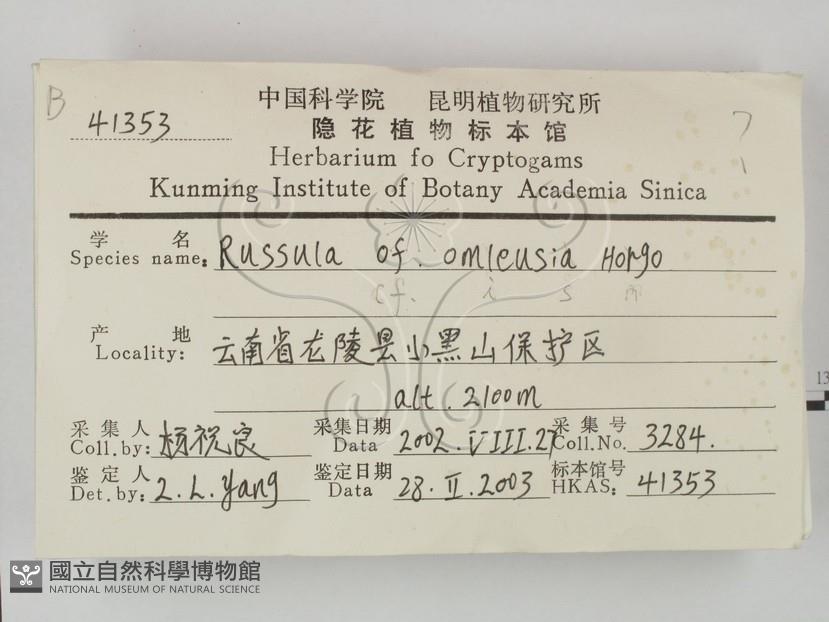 B
41353
7
1
中国科学院 昆明植物研究所
隐花植物标本馆
Herbarium fo Cryptogams
Kunming Institute of Botany Academia Sinica
学 名
Species name: Russula of. omleusia Hongo
cf. i s
产 地
Locality: 云南省龙陵县小黑山保护区
alt. 2100m
采集人 Coll.by: 杨祝良 采集日期 Data 2002.VIII.27 采集号 Coll.No. 3284.
鉴定人 Det.by: Z.L.Yang 鉴定日期 Data 28.II.2003 标本馆号 HKAS: 41353
13
國立自然科學博物館
NATIONAL MUSEUM OF NATURAL SCIENCE